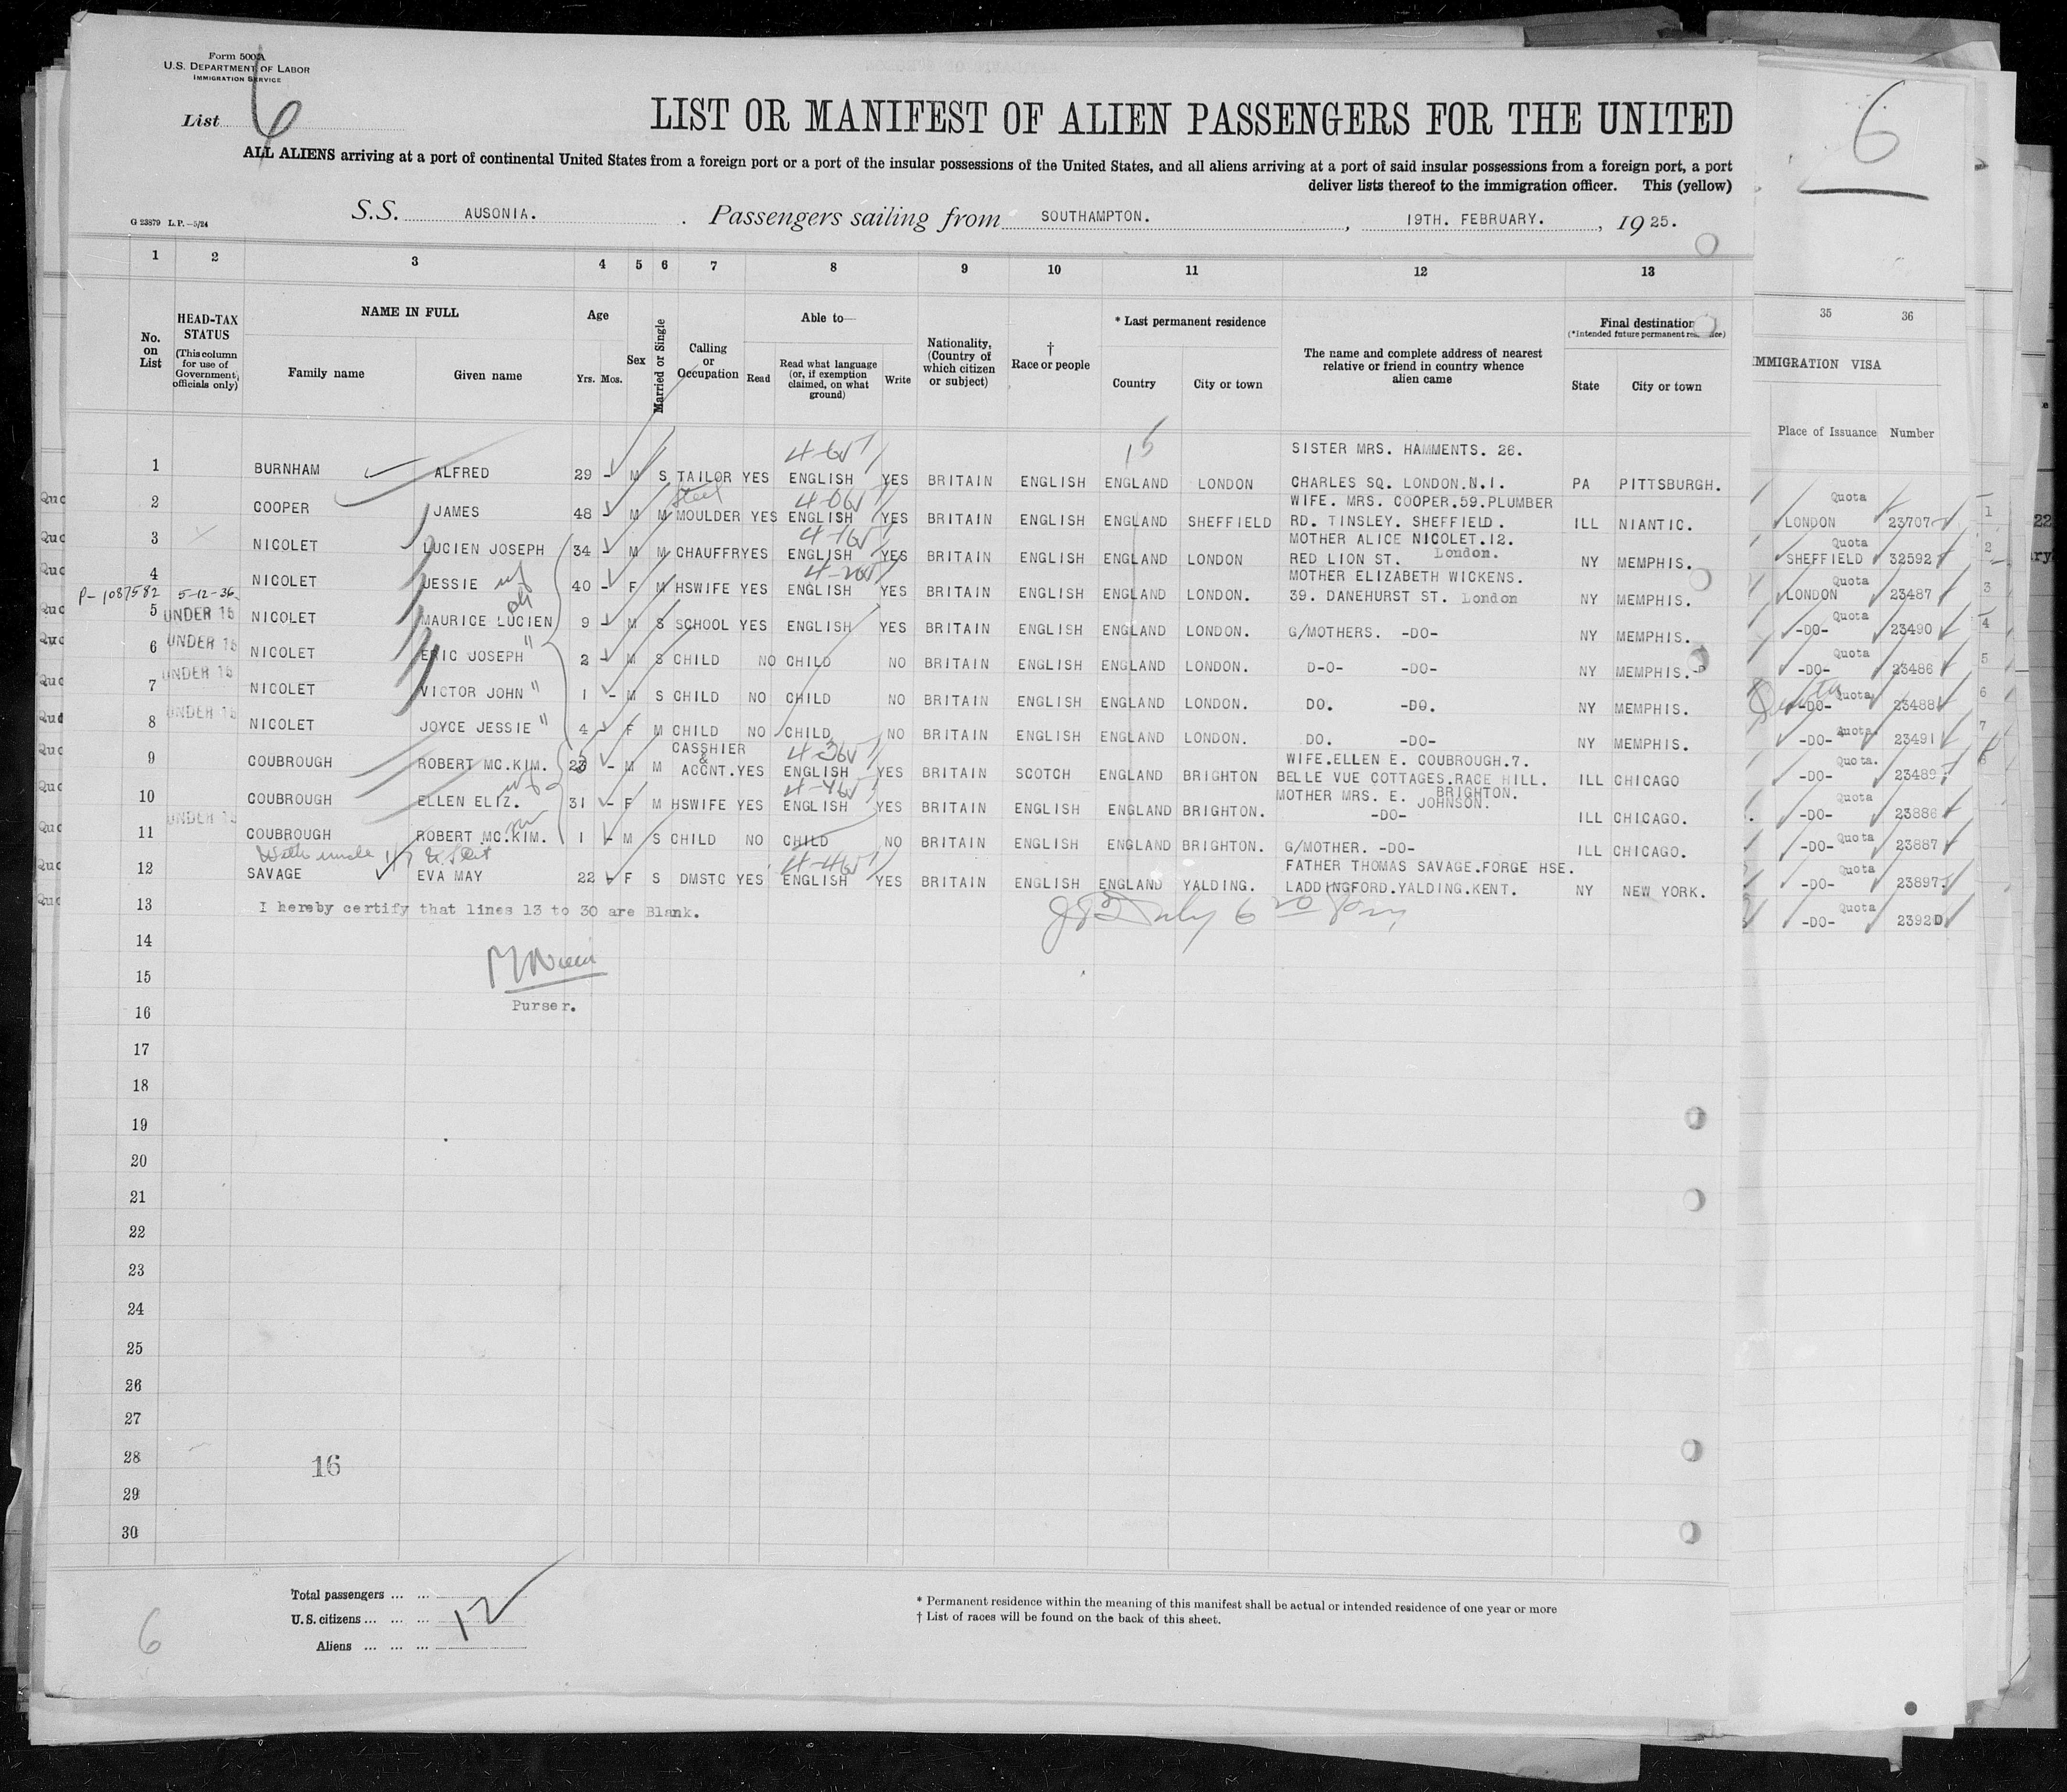 Form 500A
U.S. DEPARTMENT OF LABOR
IMMIGRATION SERVICE
List 6
LIST OR MANIFEST OF ALIEN PASSENGERS FOR THE UNITED
6
ALL ALIENS arriving at a port of continental United States from a foreign port or a port of the insular possessions of the United States, and all aliens arriving at a port of said insular possessions from a foreign port, a port
deliver lists thereof to the immigration officer. This (yellow)
G 23879 L.P.—5/24
S.S. AUSONIA. Passengers sailing from SOUTHAMPTON. , 19TH. FEBRUARY. , 19 25.
1 2 3 4 5 6 7 8 9 10 11 12 13 35 36
No. on List
HEAD-TAX STATUS (This column for use of Government officials only)
NAME IN FULL
Family name Given name
Age
Yrs. Mos.
Sex
Married or Single
Calling or Occupation
Able to—
Read Read what language (or, if exemption claimed, on what ground) Write
Nationality. (Country of which citizen or subject)
† Race or people
* Last permanent residence
Country City or town
The name and complete address of nearest relative or friend in country whence alien came
Final destination
(*Intended future permanent
State City or town
IMMIGRATION VISA
Place of Issuance Number
15
SISTER MRS. HAMMENTS. 26.
1 BURNHAM ALFRED 29 - M S TAILOR YES ENGLISH YES BRITAIN ENGLISH ENGLAND LONDON CHARLES SQ. LONDON.N.I. PA PITTSBURGH.
Steel
WIFE. MRS. COOPER.59.PLUMBER
2 COOPER JAMES 48 - M M MOULDER YES ENGLISH YES BRITAIN ENGLISH ENGLAND SHEFFIELD RD. TINSLEY. SHEFFIELD. ILL NIANTIC. Quota LONDON 23707 1
MOTHER ALICE NICOLET.12.
3 NICOLET LUCIEN JOSEPH 34 - M M CHAUFFR YES ENGLISH YES BRITAIN ENGLISH ENGLAND LONDON RED LION ST. London. NY MEMPHIS. Quota SHEFFIELD 32592 2
MOTHER ELIZABETH WICKENS.
4 NICOLET JESSIE wf 40 - F M HSWIFE YES ENGLISH YES BRITAIN ENGLISH ENGLAND LONDON. 39. DANEHURST ST. London NY MEMPHIS. Quota LONDON 23487 3
P-1087582 5-12-36
5 UNDER 16 NICOLET MAURICE LUCIEN 9 - M S SCHOOL YES ENGLISH YES BRITAIN ENGLISH ENGLAND LONDON. G/MOTHERS. -DO- NY MEMPHIS. Quota -DO- 23490 4
6 UNDER 16 NICOLET ERIC JOSEPH " 2 - M S CHILD NO CHILD NO BRITAIN ENGLISH ENGLAND LONDON. D-O- -DO- NY MEMPHIS. Quota -DO- 23486 5
7 UNDER 16 NICOLET VICTOR JOHN " 1 - M S CHILD NO CHILD NO BRITAIN ENGLISH ENGLAND LONDON. DO. -DO. NY MEMPHIS. Quota -DO- 23488 6
8 UNDER 16 NICOLET JOYCE JESSIE " 4 - F M CHILD NO CHILD NO BRITAIN ENGLISH ENGLAND LONDON. DO. -DO- NY MEMPHIS. Quota. -DO- 23491 7
CASSHIER & WIFE.ELLEN E. COUBROUGH.7.
9 COUBROUGH ROBERT MC.KIM. - M M ACCNT. YES ENGLISH YES BRITAIN SCOTCH ENGLAND BRIGHTON BELLE VUE COTTAGES.RACE HILL. BRIGHTON. ILL CHICAGO Quota. -DO- 23489 8
MOTHER MRS. E. JOHNSON.
10 COUBROUGH ELLEN ELIZ. wf 31 - F M HSWIFE YES ENGLISH YES BRITAIN ENGLISH ENGLAND BRIGHTON. -DO- ILL CHICAGO. Quota -DO- 23886
11 COUBROUGH ROBERT MC.KIM. 1 - M S CHILD NO CHILD NO BRITAIN ENGLISH ENGLAND BRIGHTON. G/MOTHER. -DO- ILL CHICAGO. Quota -DO- 23887
With uncle
FATHER THOMAS SAVAGE.FORGE HSE.
12 SAVAGE EVA MAY 22 F S DMSTC YES ENGLISH YES BRITAIN ENGLISH ENGLAND YALDING. LADDINGFORD.YALDING.KENT. NY NEW YORK. Quota -DO- 23897
13 I hereby certify that lines 13 to 30 are Blank. Quota -DO- 2392
14
15
Purser.
16
17
18
19
20
21
22
23
24
25
26
27
28
16
29
30
Total passengers ... ...
U.S. citizens ... ... ... 12
Aliens ... ... ...
6
* Permanent residence within the meaning of this manifest shall be actual or intended residence of one year or more
† List of races will be found on the back of this sheet.